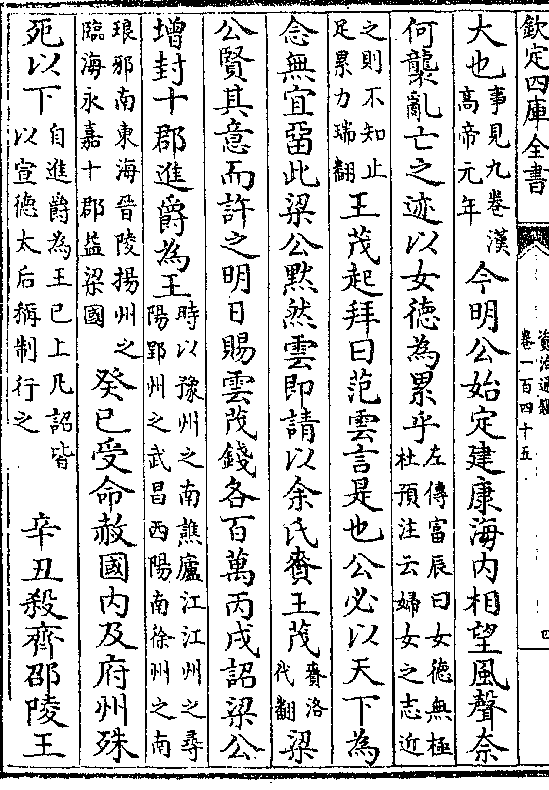 欽定四庫全書
資治通鑑
卷一百四十五
四
大也事見九卷漢高帝元年今明公始定建康海内相望風聲奈
何襲亂亡之迹以女德為累乎左傳富辰曰女德無極杜預注云婦女之志近
之則不知止足累力瑞翻王茂起拜曰范雲言是也公必以天下為
念無宜留此梁公黙然雲即請以余氏賚王茂賚洛代翻梁
公賢其意而許之明日賜雲茂錢各百萬丙戌詔梁公
增封十郡進爵為王時以豫州之南譙廬江江州之尋陽郢州之武昌西陽南徐州之南
琅邪南東海晉陵揚州之臨海永嘉十郡益梁國癸巳受命赦國内及府州殊
死以下自進爵為王已上凡詔皆以宣德太后稱制行之辛丑殺齊邵陵王